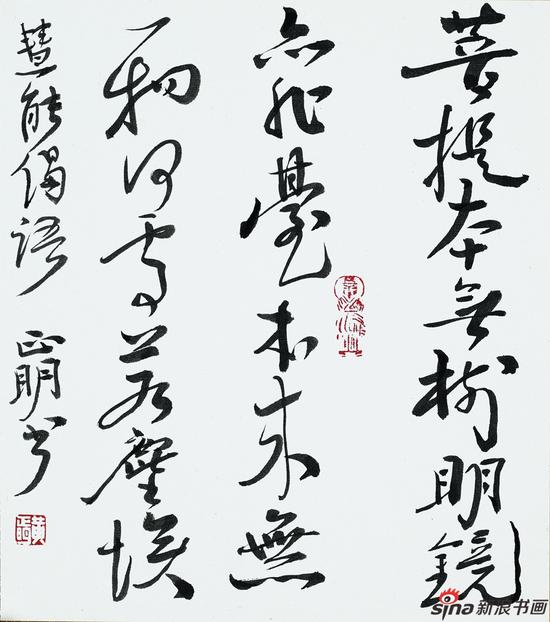 菩提本無樹明鏡
亦非臺本來無
一物何處惹塵埃
慧能偈語 正明書
sina新浪书画